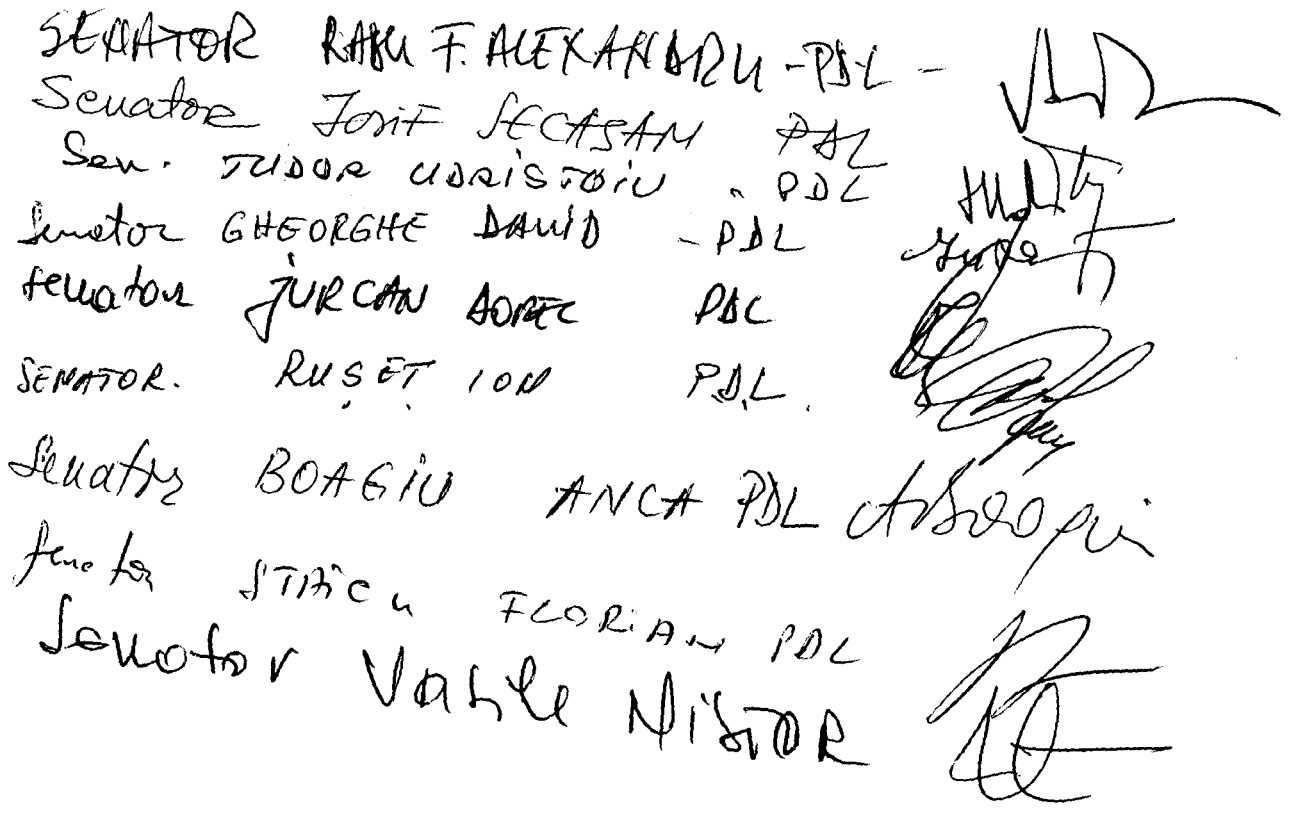 SENATOR RADU F. ALEXANDRU - PDL -
Senator Iosif SECAŞAN PDL
Sen. TUDOR UDRIŞTOIU - PDL
Senator GHEORGHE DAVID - PDL
Senator JURCAN DOREL PDL
SENATOR. RUŞEŢ ION PDL.
Senator BOAGIU ANCA PDL
Senator STAICU FLORIAN PDL
Senator Vasile NISTOR